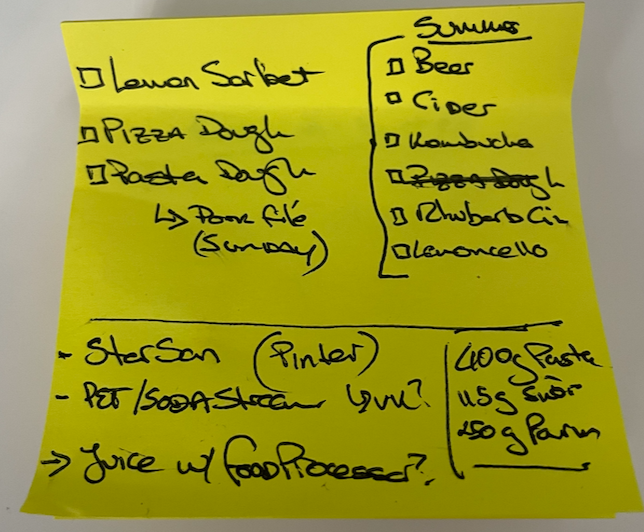 ☐ Lemon Sorbet
☐ Pizza Dough
☐ Pasta Dough
↳ Pork filé
(Sunday)
Summer
☐ Beer
☐ Cider
☐ Kombucha
☐ ~~Pizza Dough~~
☐ Rhubarb Gin
☐ Lemoncello
- StarSan (Pinter)
- PET/SodaStream ↳ UK?
→ Juice w/ Food Processer?
400g Pasta
115g Smör
250g Parm